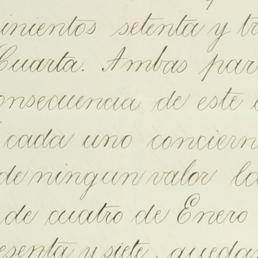 inientos setenta y tr
Cuarta. Ambas par
onsecuencia de este
cada uno conciern
de ningun valor la
de cuatro de Enero
esenta y siete, queda